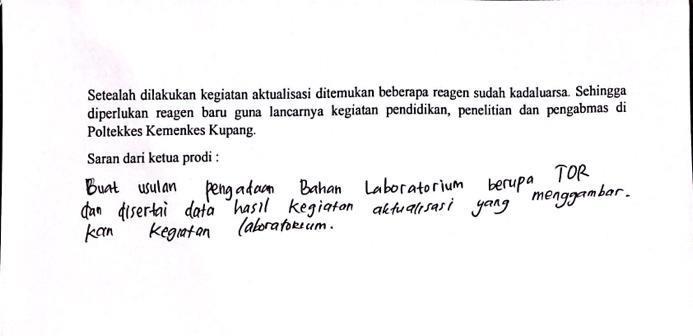 Setealah dilakukan kegiatan aktualisasi ditemukan beberapa reagen sudah kadaluarsa. Sehingga
diperlukan reagen baru guna lancarnya kegiatan pendidikan, penelitian dan pengabmas di
Poltekkes Kemenkes Kupang.
Saran dari ketua prodi :
Buat usulan pengadaan Bahan Laboratorium berupa TOR
dan disertai data hasil kegiatan aktualisasi yang menggambar-
kan kegiatan laboratorium.